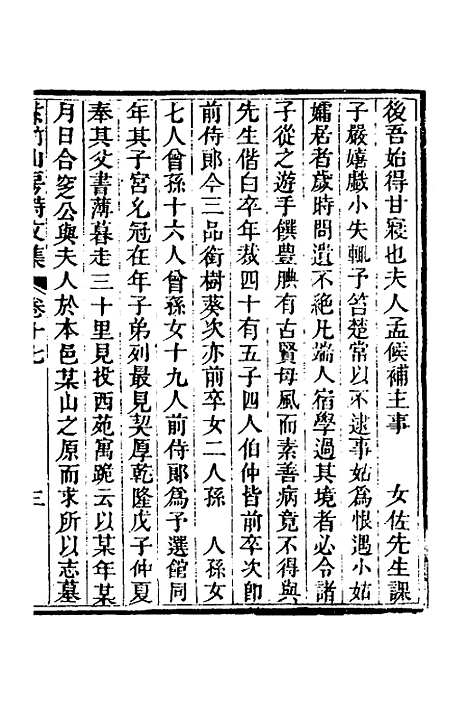 後吾始得甘寢也夫人孟候補主事　　女佐先生課
子嚴嬉戲小失輒予笞楚常以不逮事姑爲恨遇小姑
孀居者歲時問遺不絶凡端人宿學過其境者必令諸
子從之遊手饌豊腆有古賢母風而素善病竟不得與
先生偕白卒年裁四十有五子四人伯仲皆前卒次卽
前侍郞今三品銜樹葵次亦前卒女二人孫　人孫女
七人曾孫十六人曾孫女十九人前侍郞爲予選館同
年其子宮允冠在年子弟列最見契厚乾隆戊子仲夏
奉其父書薄暮走三十里見投西苑寓跪云以某年某
月日合窆公與夫人於本邑某山之原而求所以志墓
紫竹山房詩文集　卷十七　三